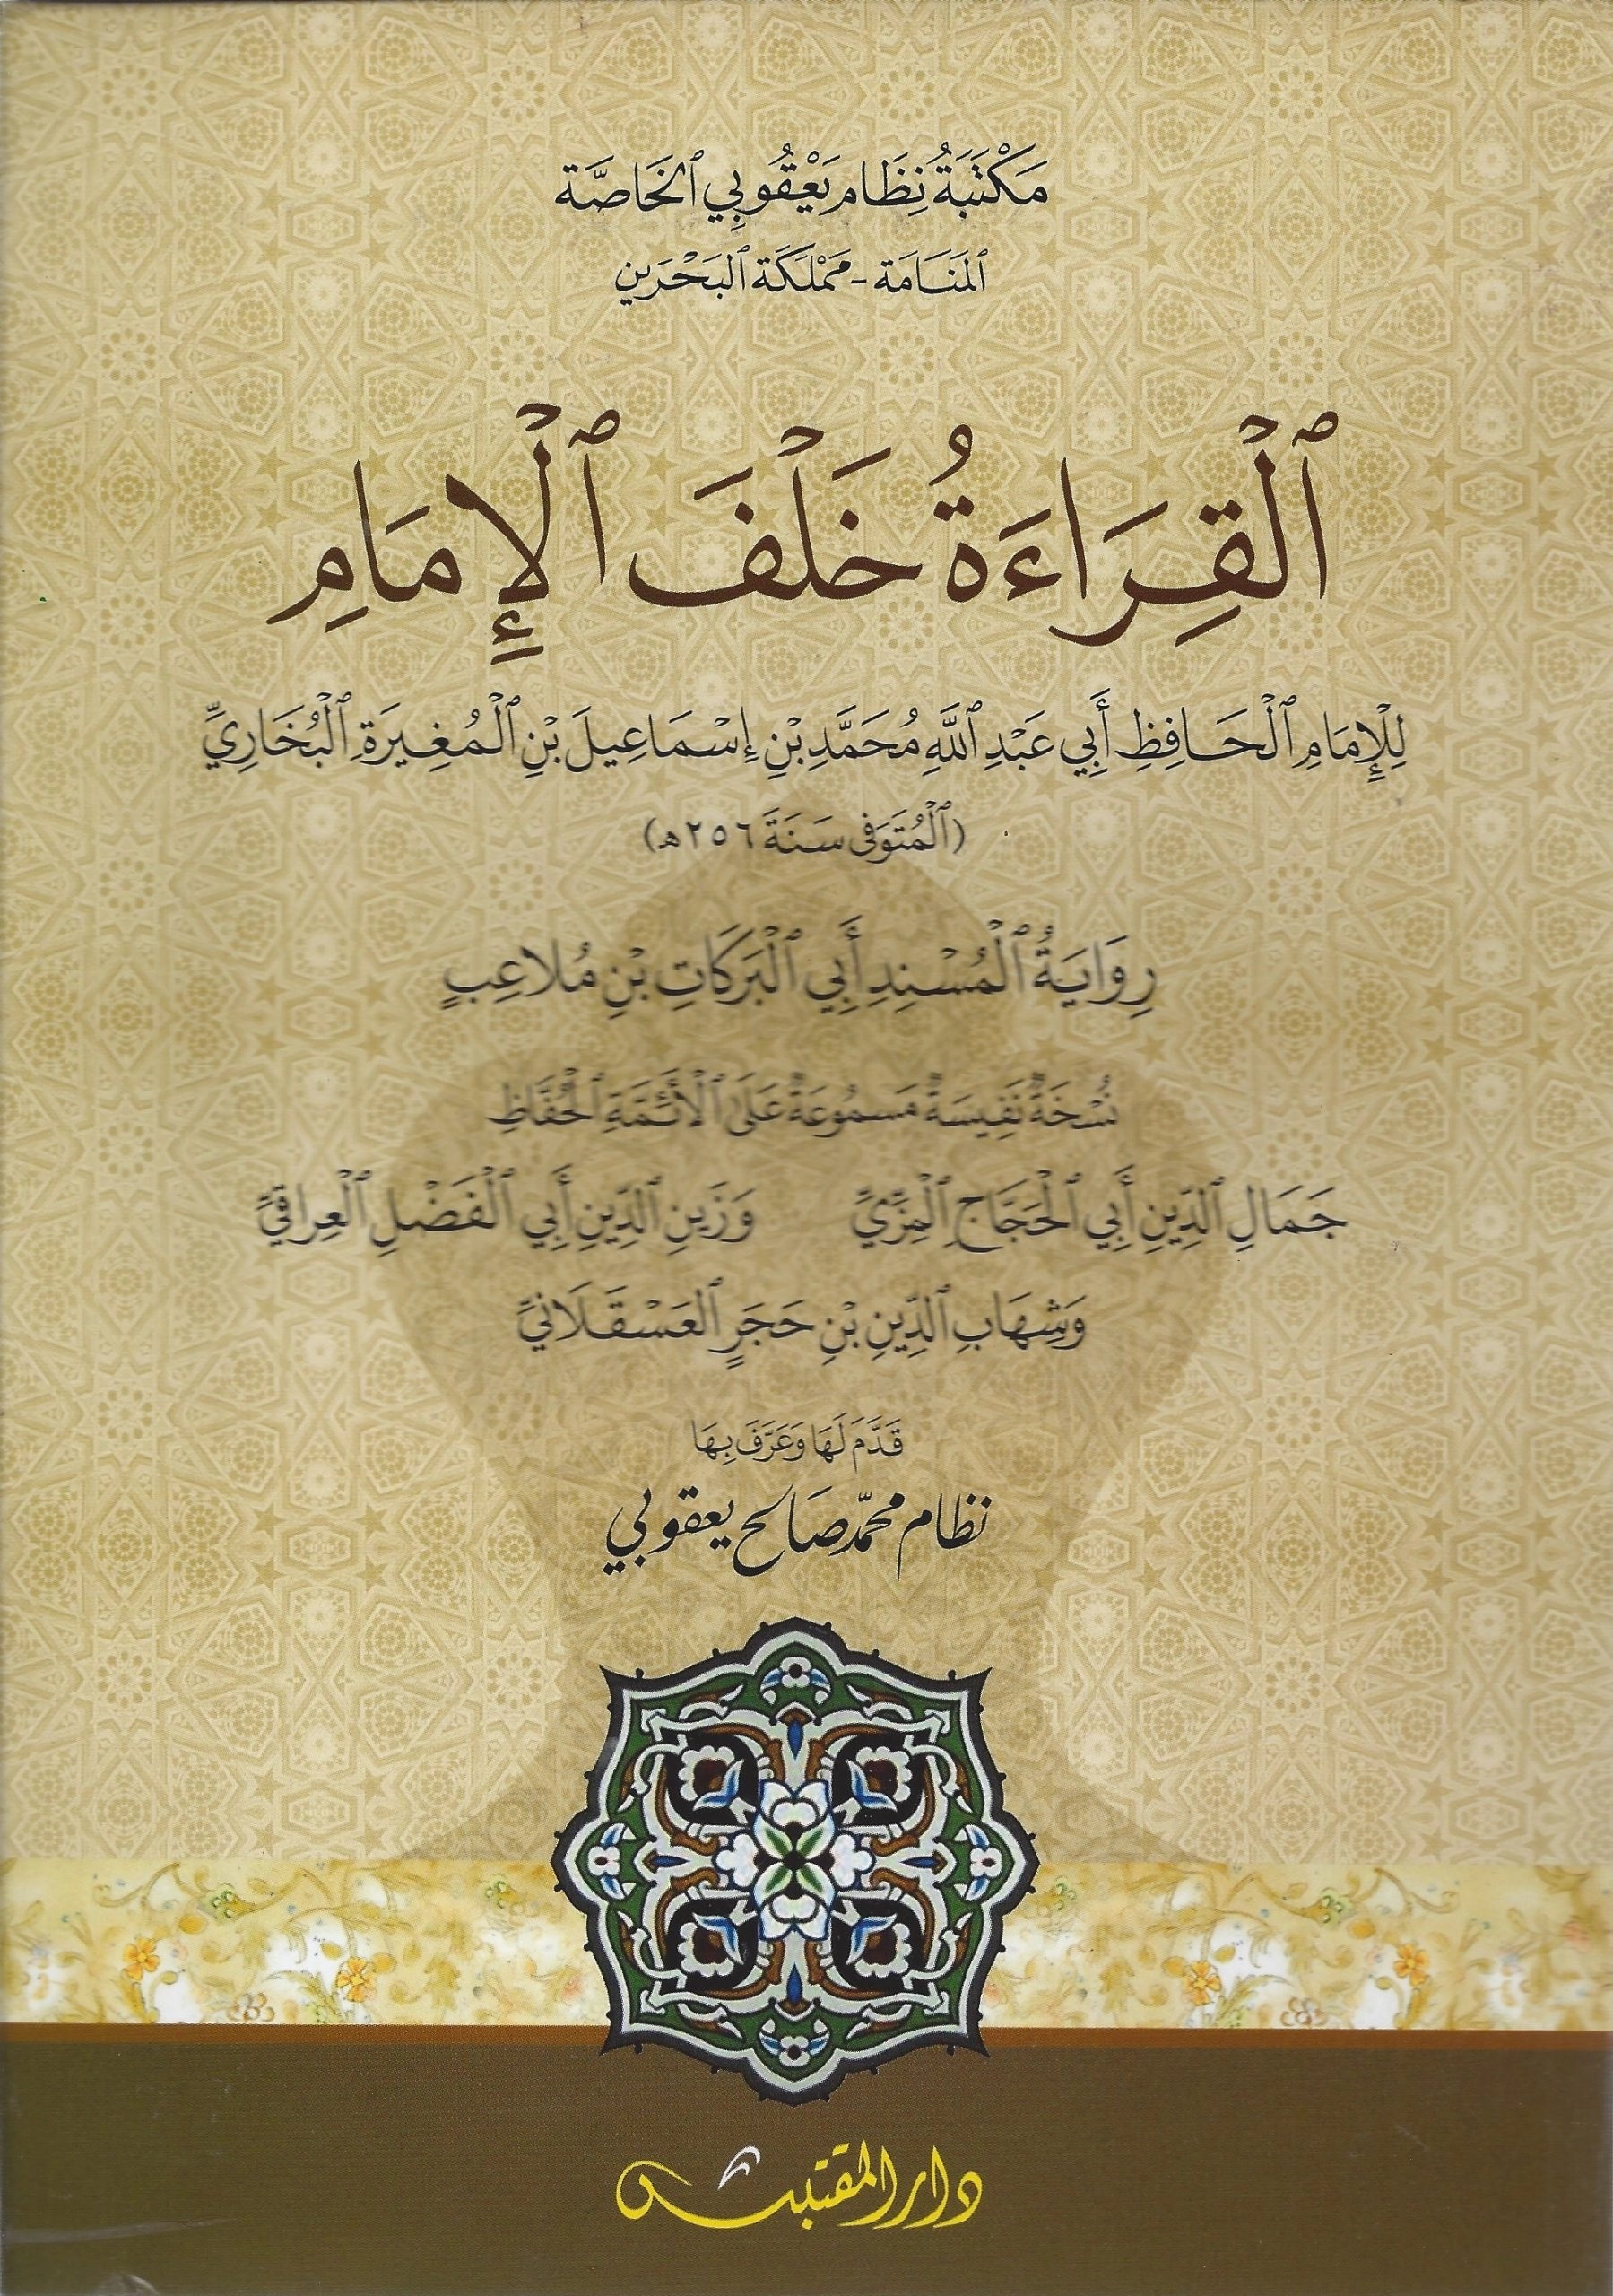 مَكْتَبَةُ نِظَام يَعْقُوبِي ٱلخَاصَّة
ٱلمَنَامَة - مَمْلَكَة ٱلبَحْرَين
ٱلْقِرَاءَةُ خَلْفَ ٱلْإِمَامِ
لِلْإِمَامِ ٱلْحَافِظِ أَبِي عَبْدِ ٱللَّهِ مُحَمَّدِ بْنِ إِسْمَاعِيلَ بْنِ ٱلْمُغِيرَةِ ٱلْبُخَارِيِّ
(ٱلْمُتَوَفى سَنَةَ ٢٥٦ هـ)
رِوَايَةُ ٱلْمُسْنِدِ أَبِي ٱلْبَرَكَاتِ بْنِ مُلاعِبٍ
نُسْخَةٌ نَفِيسَةٌ مَسمُوعَةٌ عَلَى ٱلْأَئِمَّةِ ٱلْحُفَّاظِ
جَمَالِ ٱلدِّينِ أَبِي ٱلْحَجَّاجِ ٱلْمِزِّيِّ وَزَينِ ٱلدِّينِ أَبِي ٱلْفَضْلِ ٱلْعِرَاقِيِّ
وَشِهَابِ ٱلدِّينِ بْنِ حَجَرٍ ٱلعَسْقَلَانِيِّ
قَدَّمَ لَهَا وَعَرَّفَ بِهَا
نظام محمّد صَالح يعقوبي
دار المقتبس